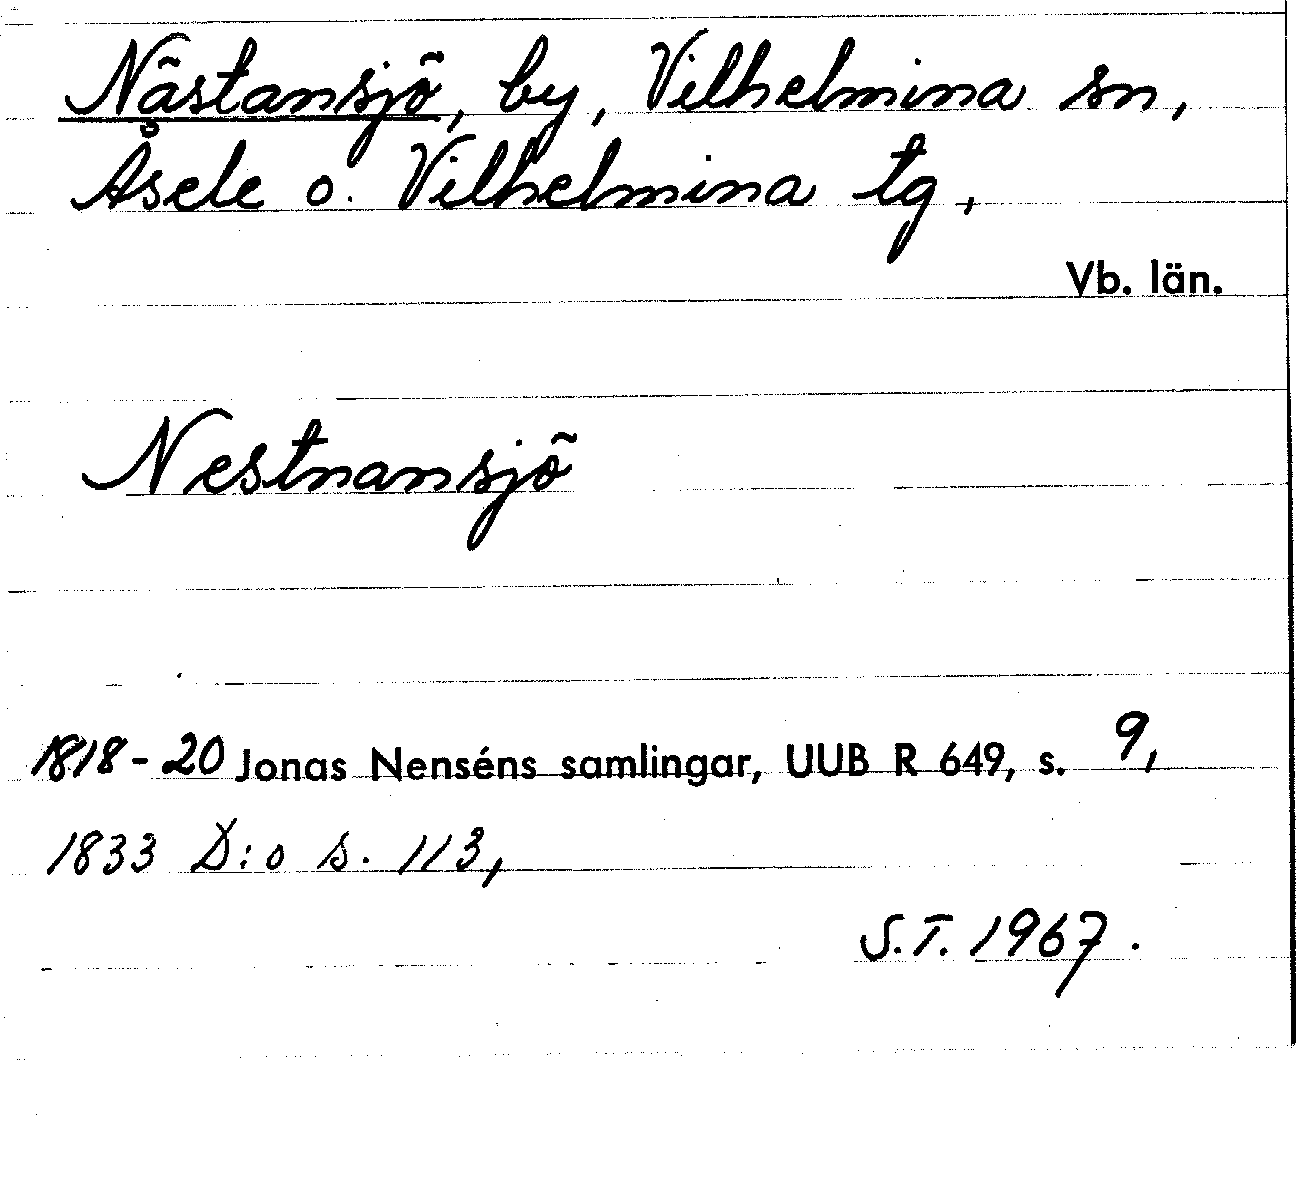 Nästansjö, by, Vilhelmina sn,
Åsele o. Vilhelmina tg,
Vb. län.
Nestnansjö
1818-20 Jonas Nenséns samlingar, UUB R 649, s. 9,
1833 D:o s. 113,
S.T. 1967.